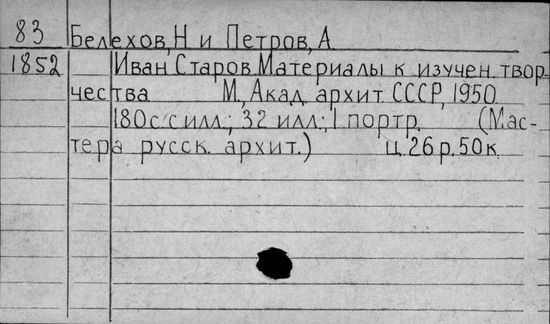 83 Белехов, Н и Петров, А
1852 Иван Старов. Материалы к изучен. твор-
чества М., Акад. архит. СССР, 1950.
180с. с илл.; 32 илл.; 1 портр. (Мас-
тера русск. архит.) ц. 26 р. 50 к.